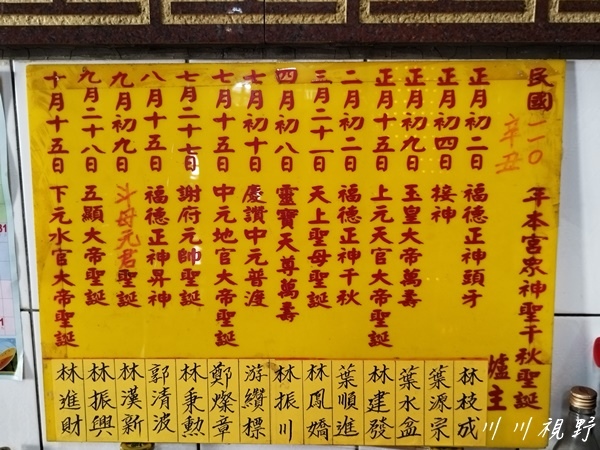 民國一一〇年本宮眾神聖千秋聖誕
辛丑
爐主
正月初二日 福德正神頭牙
正月初四日 接神
正月初九日 玉皇大帝萬壽
正月十五日 上元天官大帝聖誕
二月初二日 福德正神千秋
三月二十一日 天上聖母聖誕
四月初八日 靈寶天尊萬壽
七月初十日 慶讚中元普渡
七月十五日 中元地官大帝聖誕
七月二十七日 謝府元帥聖誕
八月十五日 福德正神昇神
九月初九日 斗母元君聖誕
九月二十八日 五顯大帝聖誕
十月十五日 下元水官大帝聖誕
林枝成
葉源宗
葉水盆
林建發
葉順進
林鳳嬌
林振川
游纘標
鄭燦章
林秉勲
郭清波
林漢新
林振興
林進財
川川視野